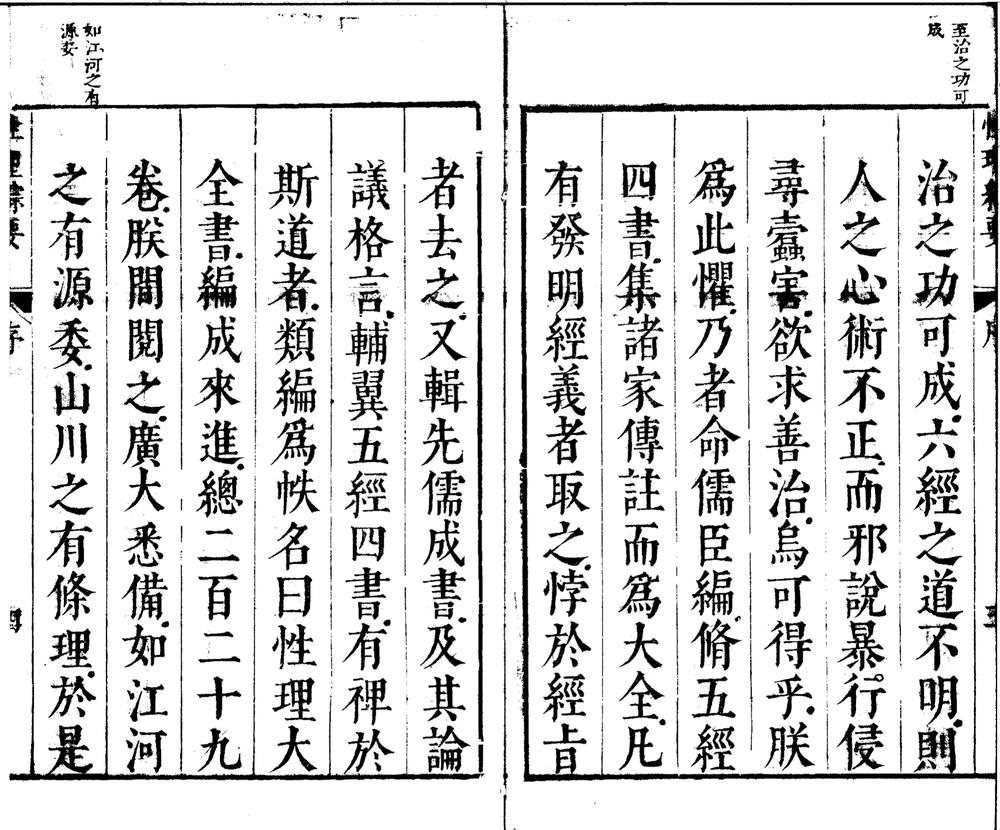 至治之功可
成
治之功可成六經之道不明則
人之心術不正而邪說暴行侵
尋蠹害欲求善治烏可得乎朕
爲此懼乃者命儒臣編脩五經
四書集諸家傳註而爲大全凡
有發明經義者取之悖於經旨
如江河之有
源委
者去之又輯先儒成書及其論
議格言輔翼五經四書有裨於
斯道者類編爲帙名曰性理大
全書編成來進總二百二十九
卷朕間閱之廣大悉備如江河
之有源委山川之有條理於是
序